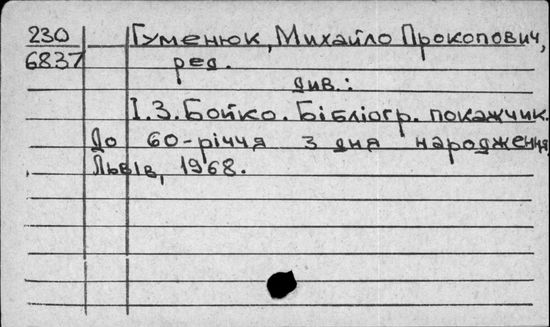 230
6837
Гуменюк, Михайло Прокопович,
ред.
див.:
І.З.Бойко. Бібліогр. покажчик.
До 60-річчя з дня народження
Львів, 1968.